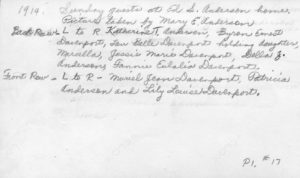 1914. Sunday guests at Ed S. Anderson home.
Picture taken by Mary E. Anderson
Back Row - L to R Katherine T. Anderson, Byron Ernest
Davenport, Fan Belle Davenport holding daughter,
Maralla, Jessie Marie Davenport, Della J.
Anderson, Fannie Eulalia Davenport.
Front Row - L to R - Muriel Jean Davenport, Patricia
Anderson and Lily Louise Davenport.
P1. #17